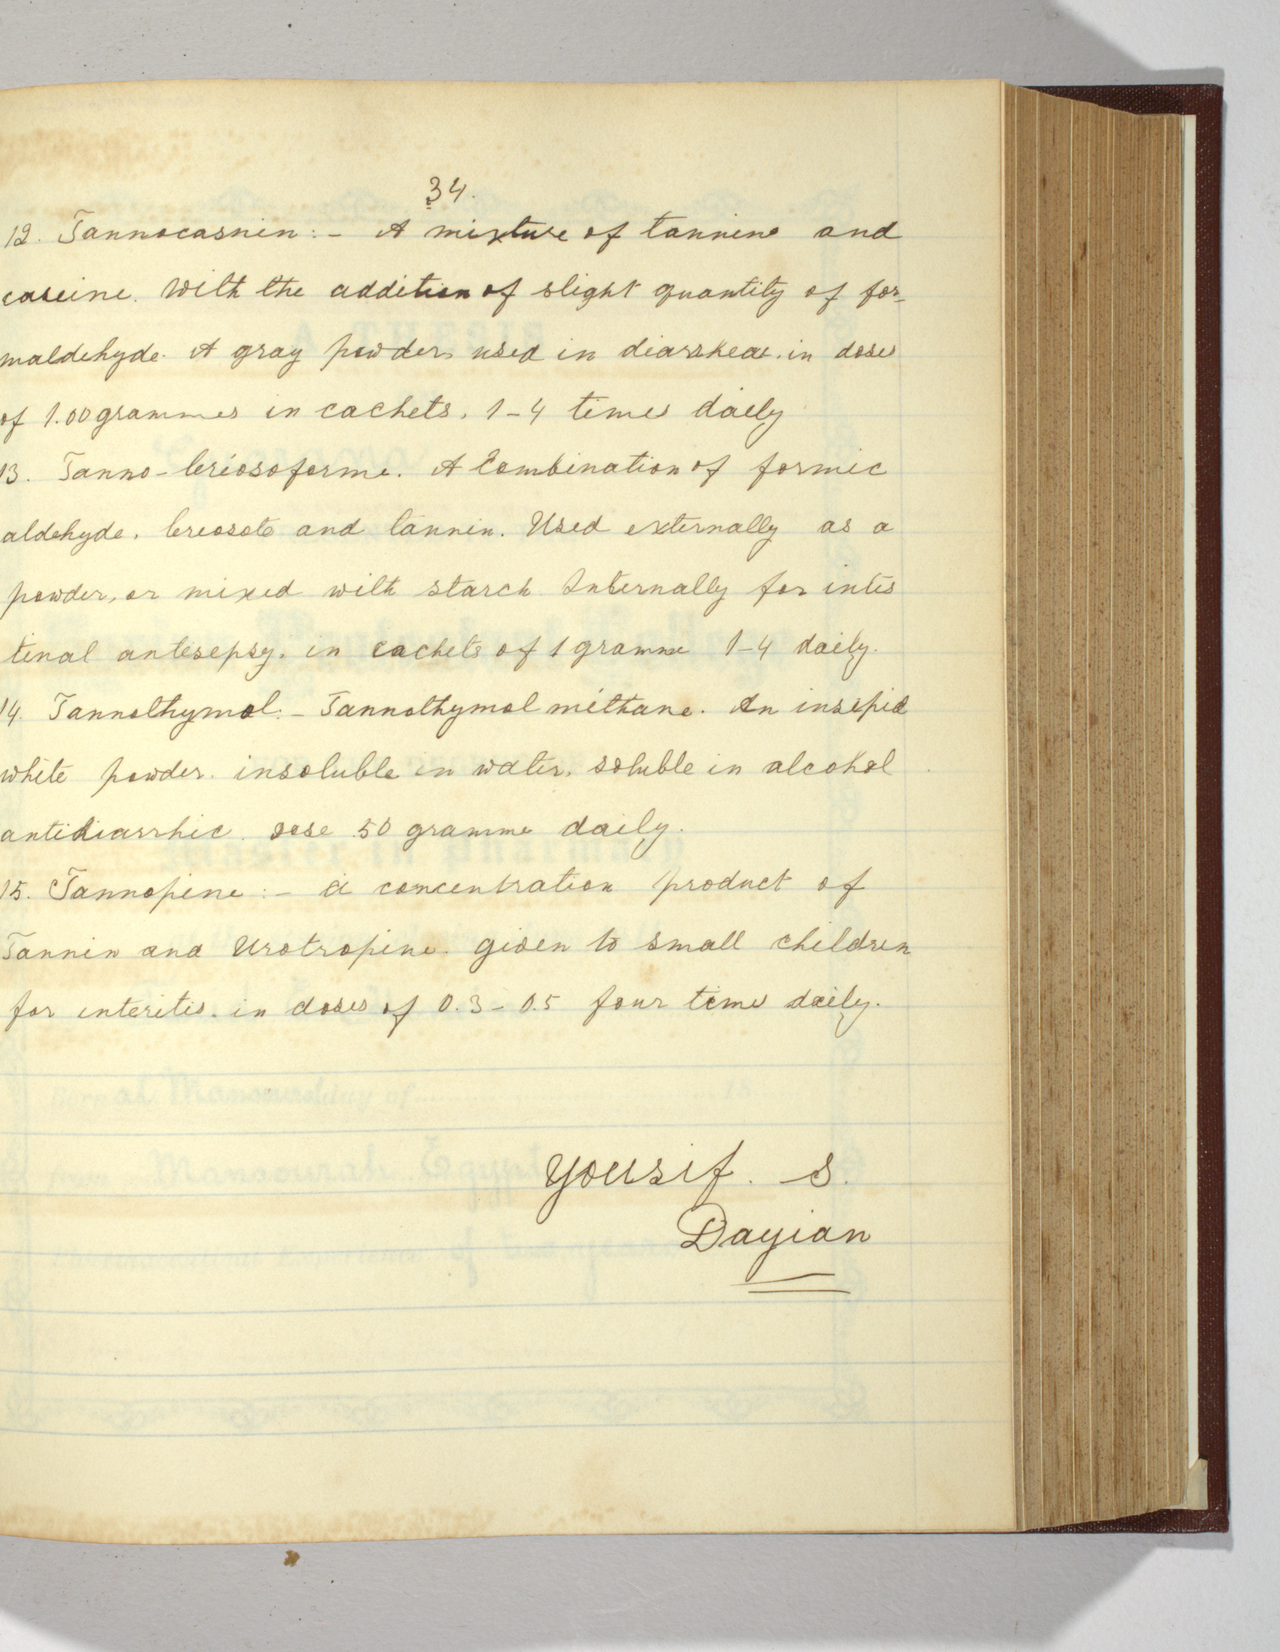 34.
12. Tannocasnin:- A mixture of tannine and
caseine. With the addition of slight quantity of for-
maldehyde. A gray powder, used in diarrheae. in doses
of 1.00 grammes in cachets, 1-4 times daily
13. Tanno-Creosoforme. A Combination of formic
aldehyde. Creosote and tannin. Used externally as a
powder, or mixed with starch. Internally for intes
tinal antisepsy. in cachets of 1 gramme 1-4 daily.
14. Tannothymol:- Tannothymol méthane. An insipid
white powder. insoluble in water, soluble in alcohol
antidiarrhic. dose 50 gramme daily.
15. Tannopine:- a concentration product of
Tannin and Urotropine. given to small children
for enteritis. in doses of 0.3-0.5 four times daily.
Yousif. S.
Dayian